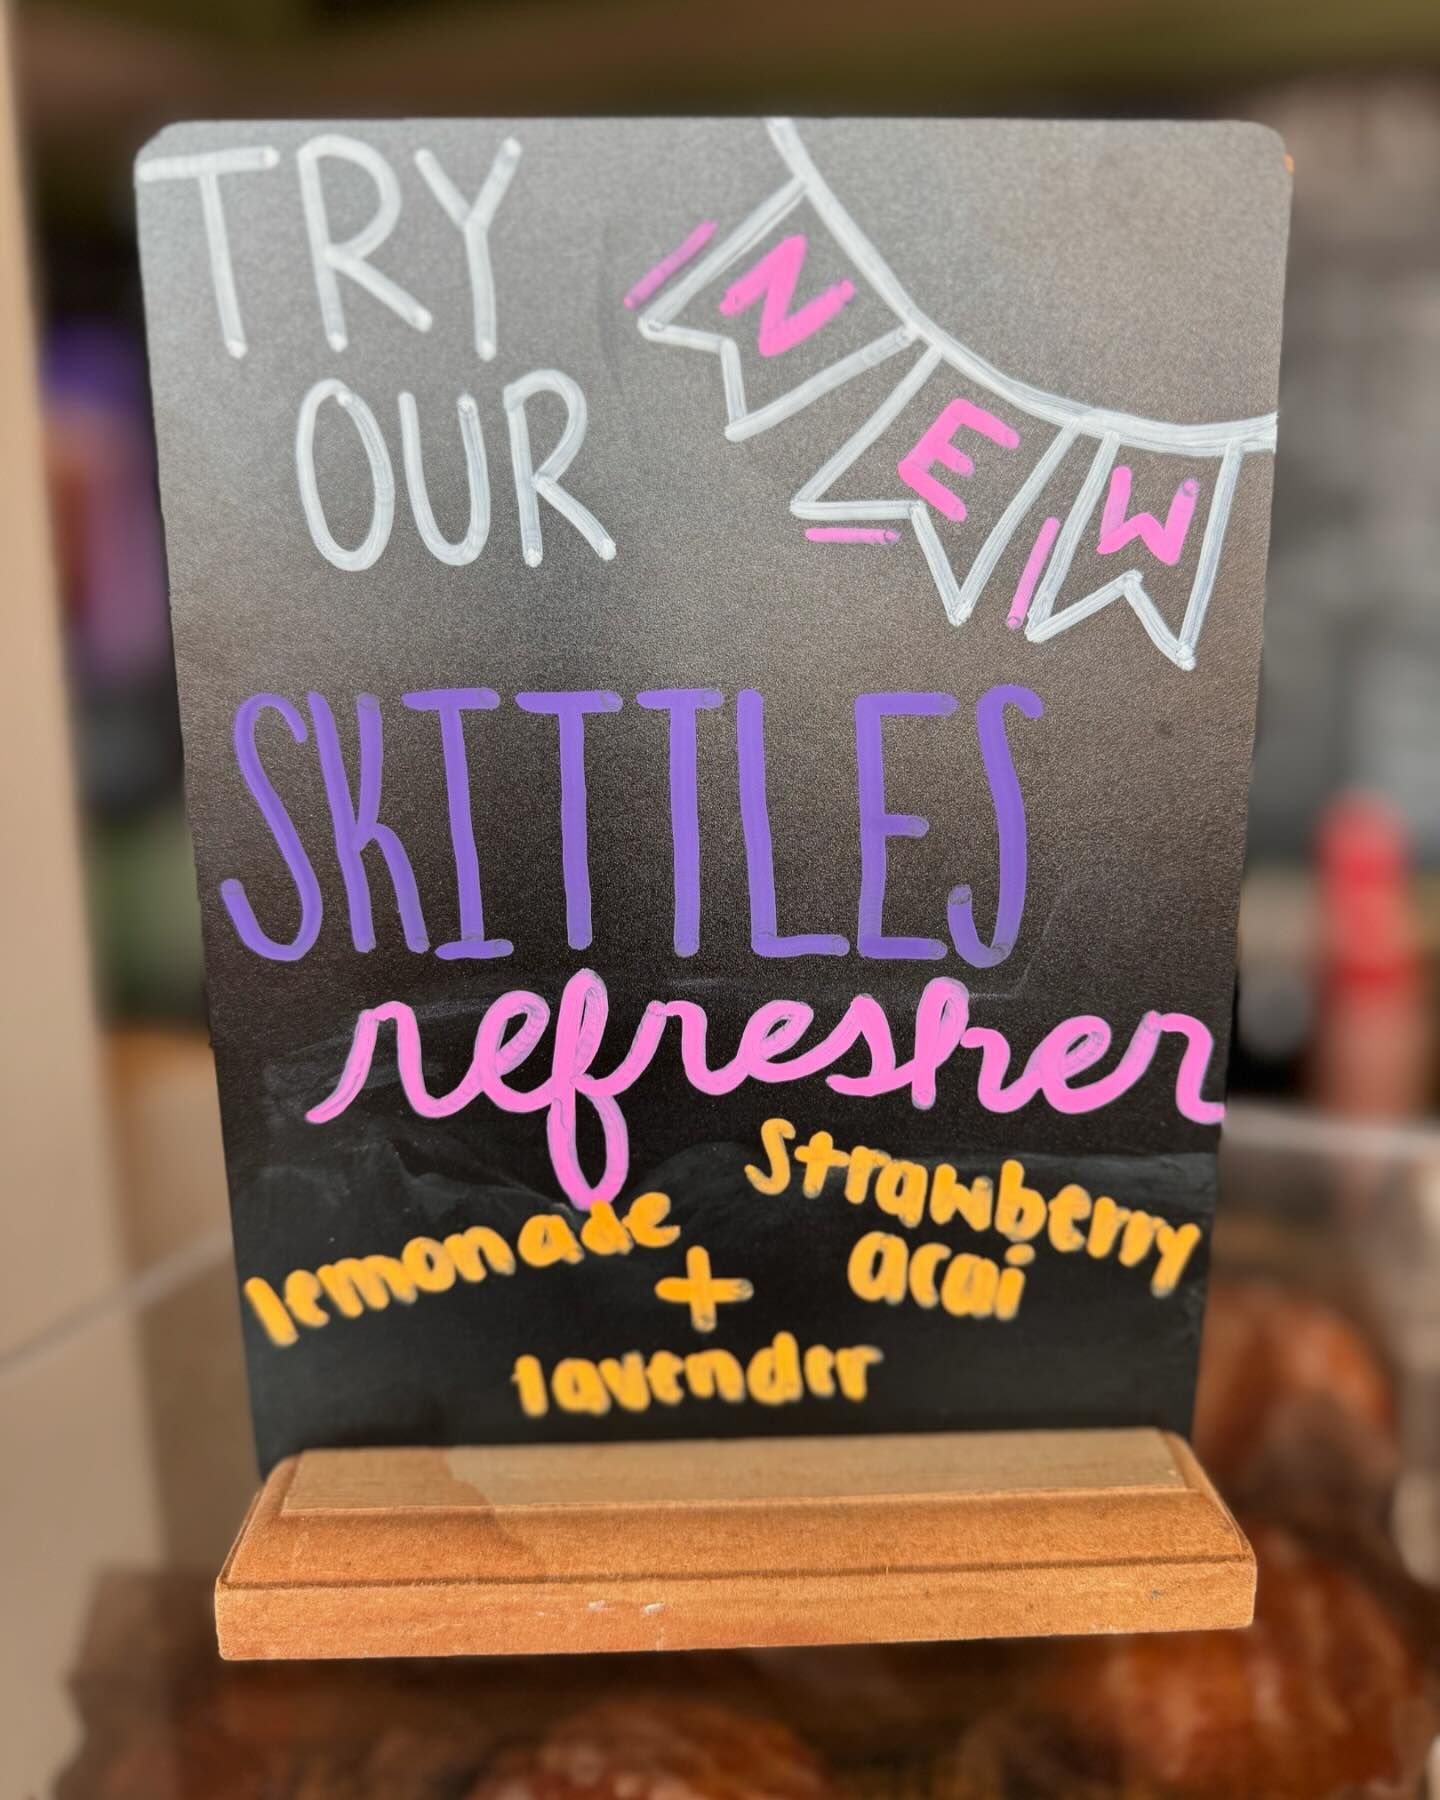 TRY
OUR
NEW
SKITTLES
refresher
lemonade
+
strawberry
acai
lavender